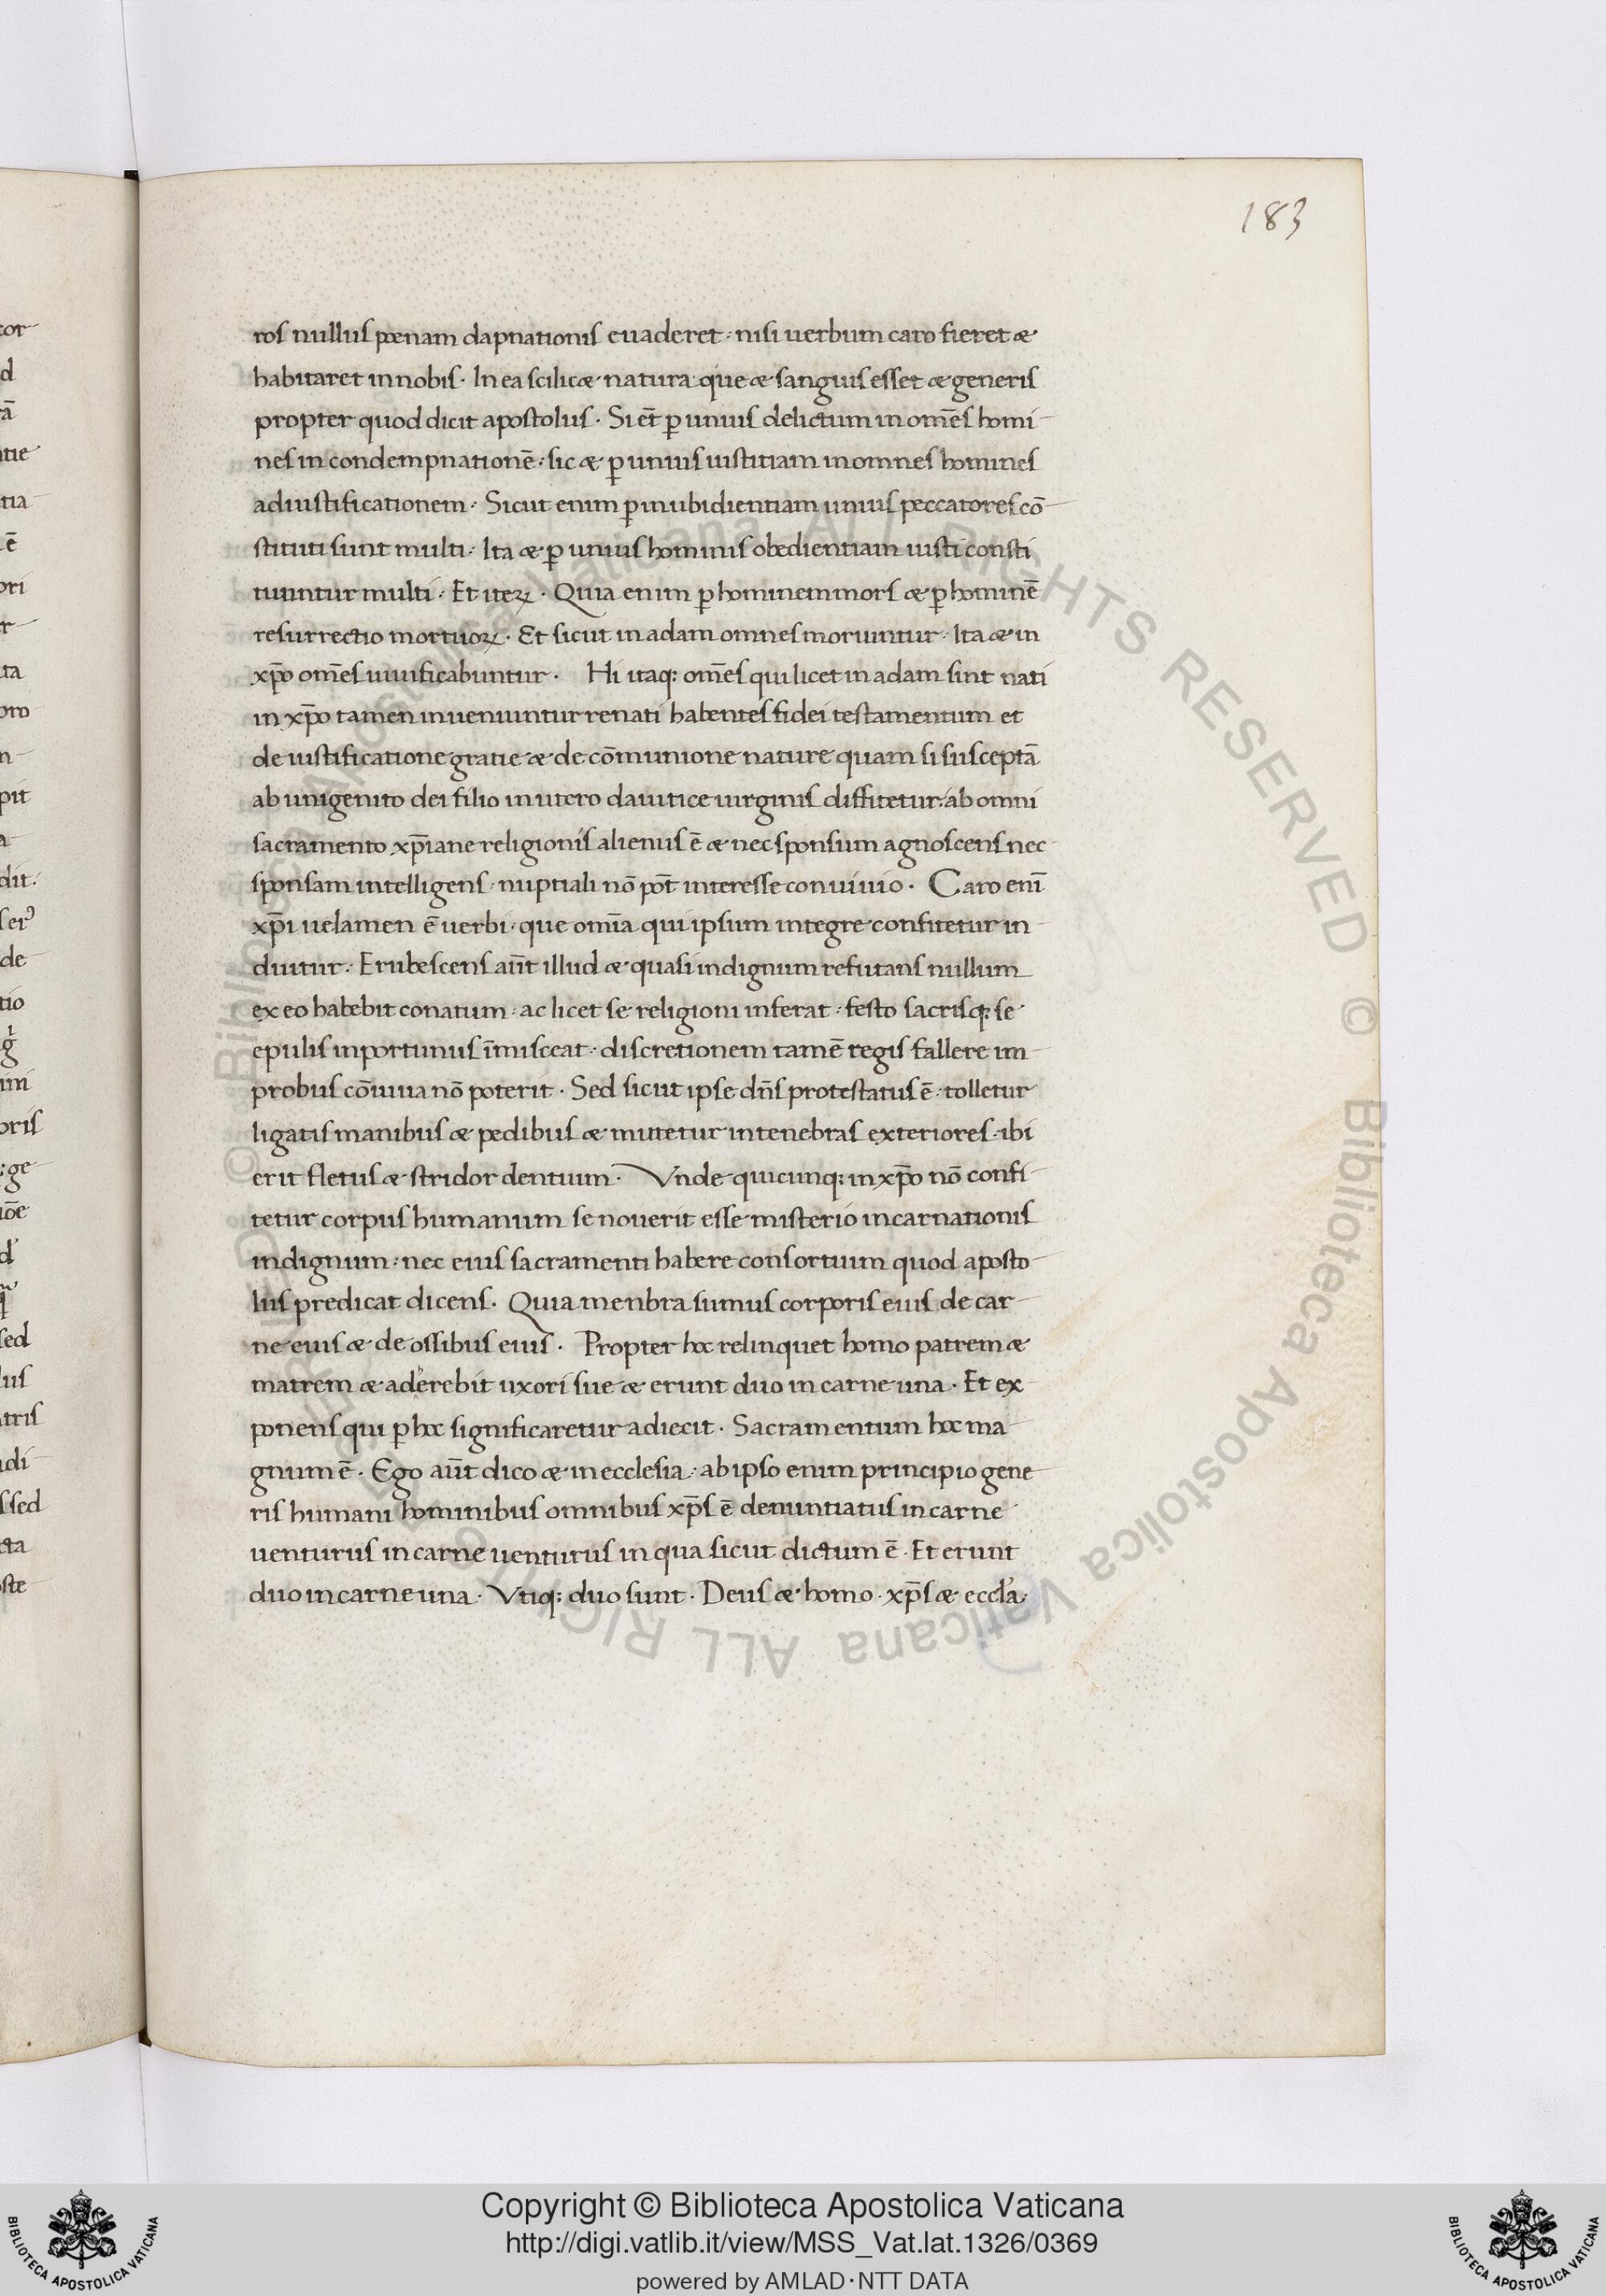 183
ros nullus pœnam dapnationis euaderet · nisi uerbum caro fieret æ
habitaret in nobis · In ea scilicæ natura que æ sanguis esset æ generis
propter quod dicit apostolus · Si et̄ ꝑ unius delictum in om̄es homi
nes in condempnationē · sic æ ꝑ unius iustitiam in omnes homines
ad iustificationem · Sicut enim ꝑ inubidientiam unius peccatores cō
stituti sunt multi · Ita æ ꝑ unius hominis obedientiam iusti consti
tuuntur multi · Et iteꝝ · Quia enim ꝑ hominem mors æ ꝑ hominē
resurrectio mortuoꝝ · Et sicut in adam omnes moriuntur · Ita æ in
xp̄o om̄es uiuificabuntur · Hi itaq: om̄es qui licet in adam sint nati
in xp̄o tamen inueniuntur renati habentes fidei testamentum et
de iustificatione gratie æ de cōmunione nature quam si susceptā
ab unigenito dei filio in utero dauitice uirginis diffitetur · ab omni
sacramento xp̄iane religionis alienus ē æ nec sponsum agnoscens nec
sponsam intelligens · nuptiali nō pōt interesse conuiuio · Caro enī
xp̄i uelamen ē uerbi · que om̄ia qui ipsum integre confitetur in
duitur · Erubescens aūt illud æ quasi indignum refutans nullum
ex eo habebit conatum · ac licet se religioni inferat · festo sacrisq: se
epulis inportunus īmisceat · discretionem tamē regis fallere im
probus cōuiua nō poterit · Sed sicut ipse dn̄s protestatus ē · tolletur
ligatis manibus æ pedibus æ mutetur in tenebras exteriores · ibi
erit fletus æ stridor dentium · Vnde quicunq: in xp̄o nō confi
tetur corpus humanum se nouerit esse misterio incarnationis
indignum · nec eius sacramenti habere consortium quod aposto
lus predicat dicens · Quia menbra sumus corporis eius de car
ne eius æ de ossibus eius · Propter hoc relinquet homo patrem æ
matrem æ adʼerebit uxori sue æ erunt duo in carne una · Et ex
ponens qui ꝑ hoc significaretur adiecit · Sacramentum hoc ma
gnum ē · Ego aūt dico æ in ecclesia · ab ipso enim principio gene
ris humani hominibus omnibus xp̄s ē denuntiatus in carne
uenturus in carne uenturus in qua sicut dictum ē · Et erunt
duo in carne una · Vtiq: duo sunt · Deus æ homo · xp̄s æ eccl̓a ·
© Biblioteca Apostolica Vaticana ALL RIGHTS RESERVED © Biblioteca Apostolica Vaticana ALL RIGHTS RESERVED
Copyright © Biblioteca Apostolica Vaticana
http://digi.vatlib.it/view/MSS_Vat.lat.1326/0369
powered by AMLAD·NTT DATA
BIBLIOTECA APOSTOLICA VATICANA
BIBLIOTECA APOSTOLICA VATICANA